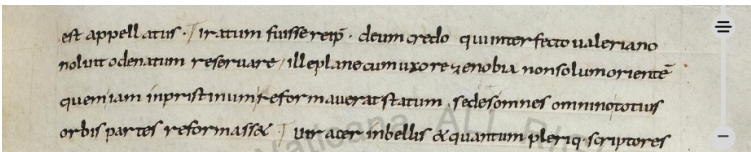 est appellatus · iratum fuisse reip̄ · deum credo qui interfecto ualeriano
noluit odenatum reseruare / ille plane cum uxore zenobia non solum orientē
quem iam in pristinum reformauerat statum sed es omnes omnino totius
orbis partes reformasset / uir acer in bellis & quantum pleriq· scriptores